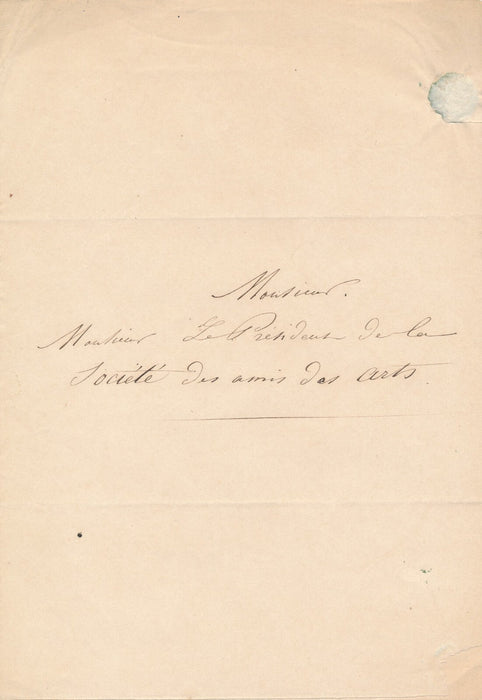 Monsieur.
Monsieur Le Président de la
Société des amis des arts.